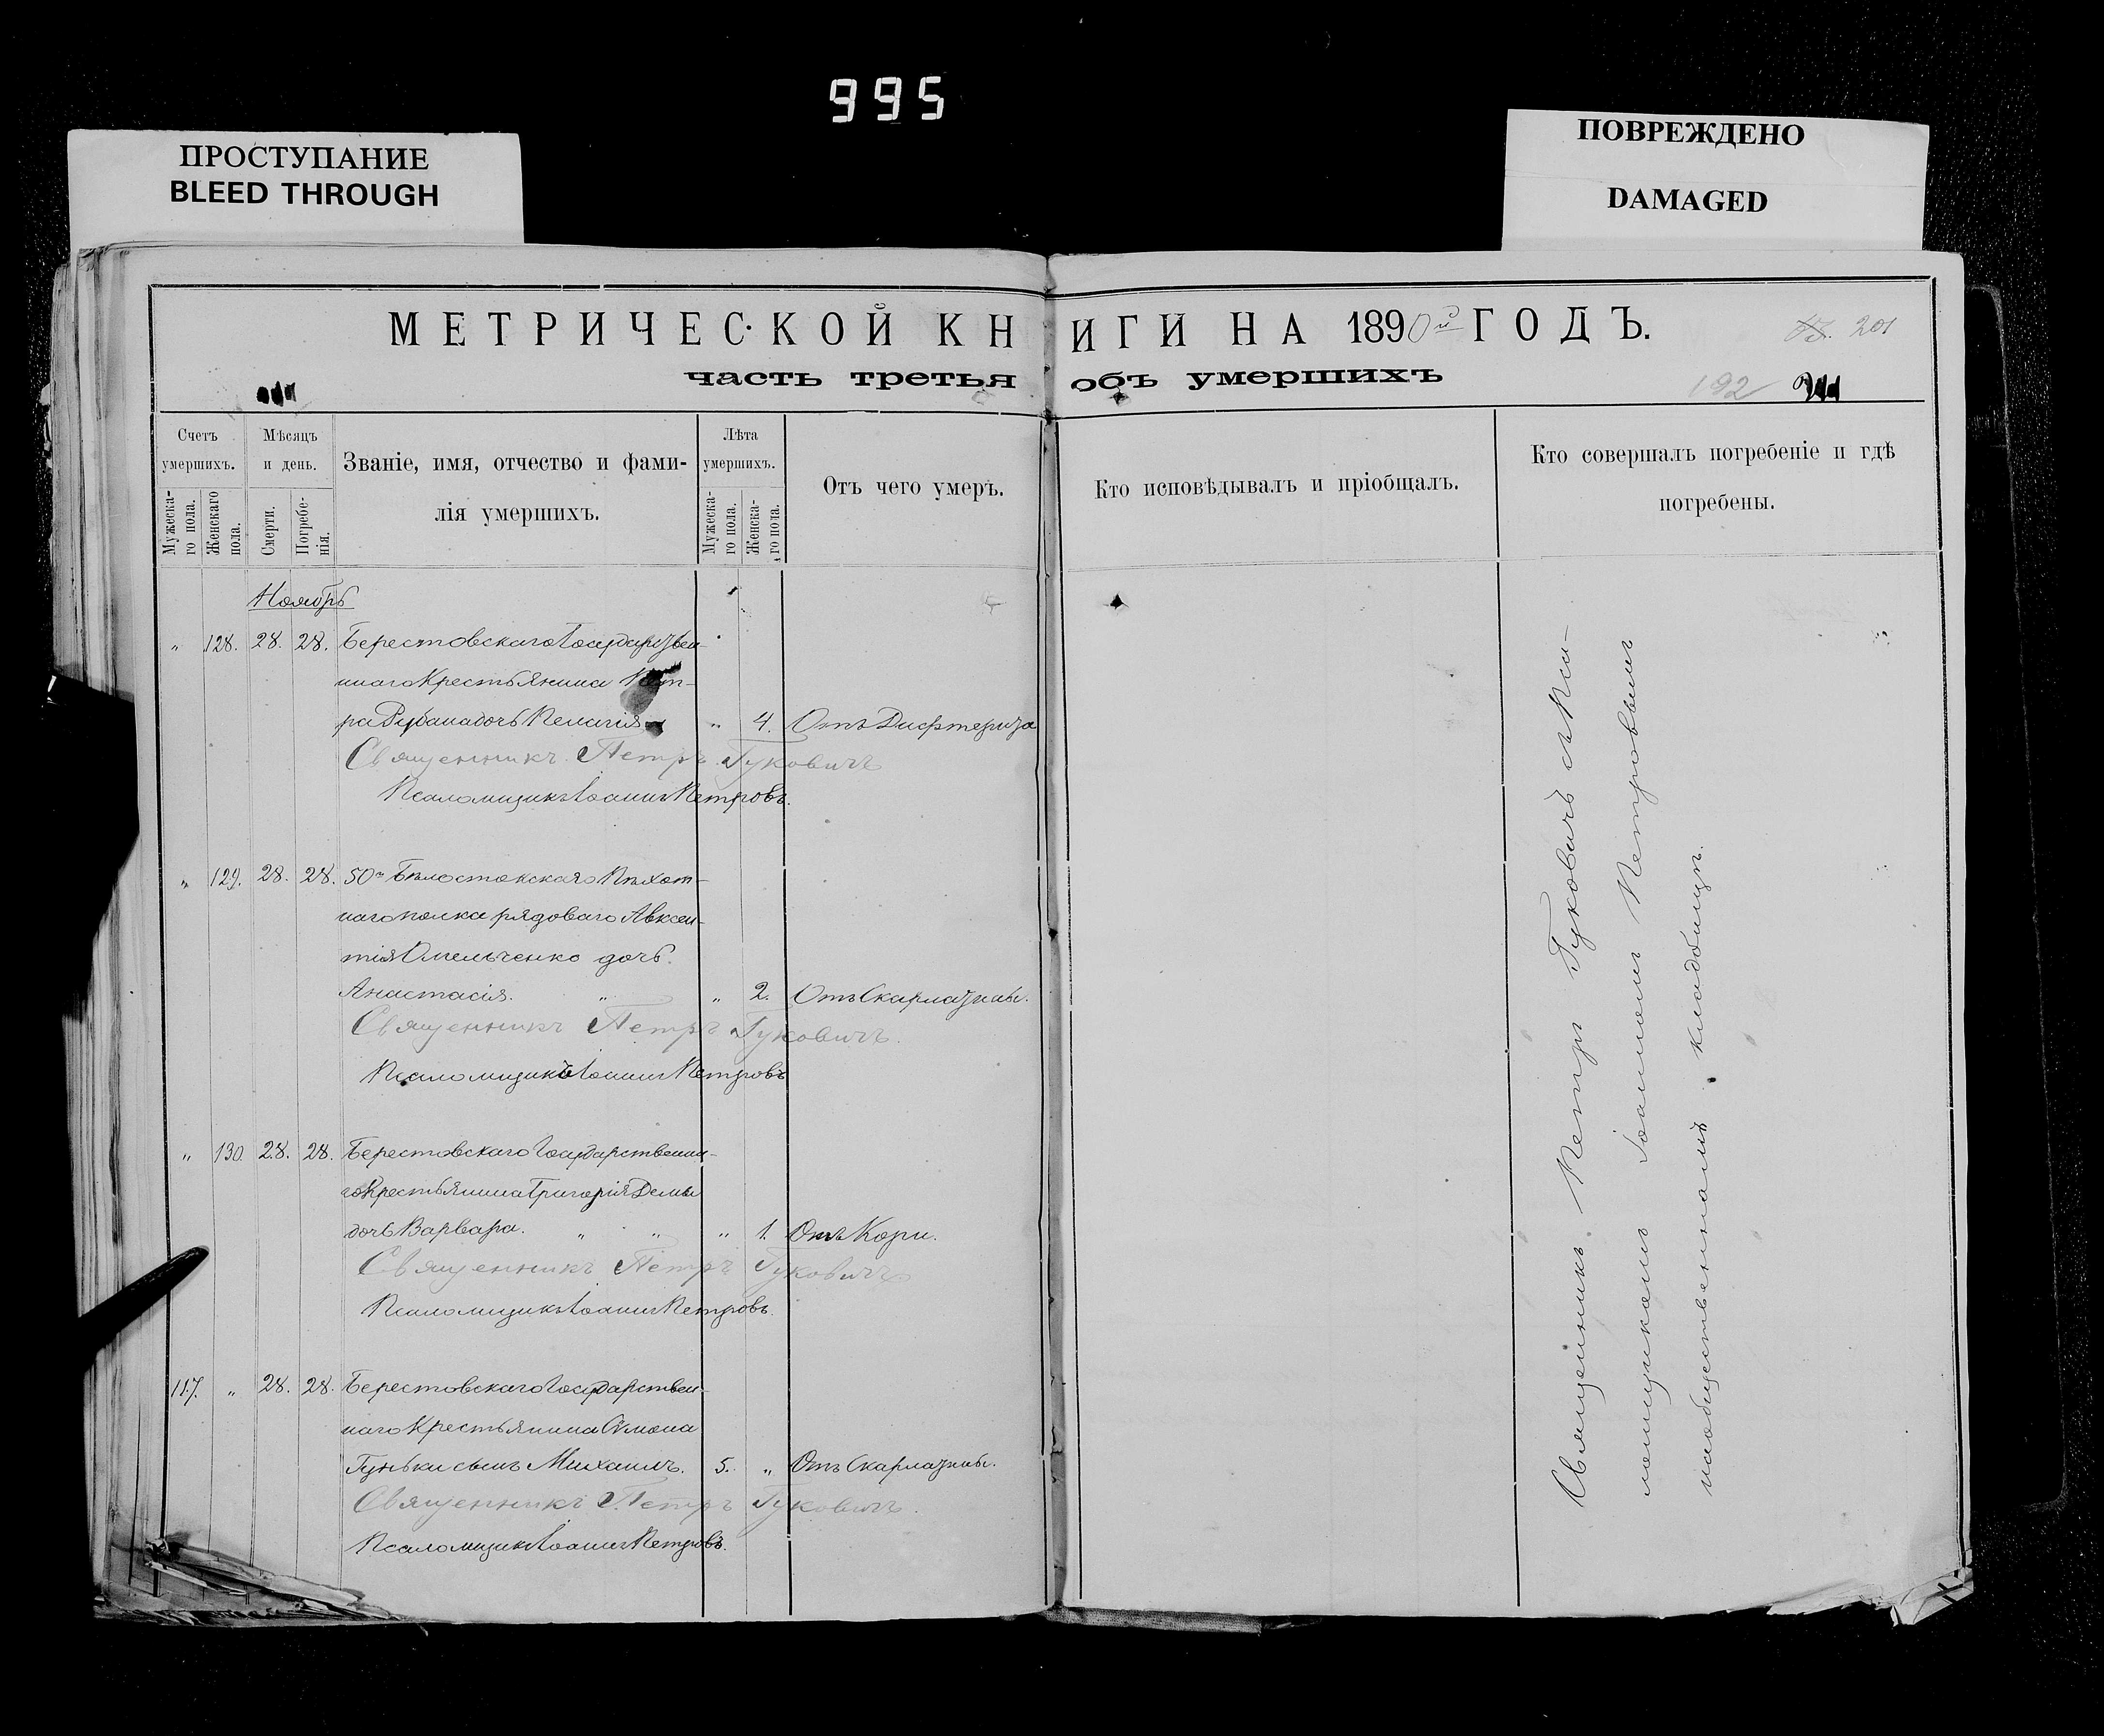 995
ПРОСТУПАНИЕ
BLEED THROUGH
ПОВРЕЖДЕНО
DAMAGED
МЕТРИЧЕСКОЙ КНИГИ НА 1890й ГОДЪ.
201
часть третья объ умершихъ
192
Счетъ умершихъ.
Мужескаго пола.
Женскаго пола.
Мѣсяцъ и день.
Смерти.
Погребенія.
Званіе, имя, отчество и фами-
лія умершихъ.
Лѣта умершихъ.
Мужескаго пола.
Женскаго пола.
Отъ чего умеръ.
Кто исповѣдывалъ и пріобщалъ.
Кто совершалъ погребеніе и гдѣ
погребены.
Ноябрь
" 128. 28. 28. Берестовскаго Государствен-
наго Крестьянина Пет-
ра Рубана дочь Пелагія " 4. Отъ Дифтерита
Священникъ Петръ Гуковичъ
Псаломщикъ Іоаннъ Петровъ.
" 129. 28. 28. 50го Бѣлостокскаго Пѣхот-
наго полка рядоваго Авксен-
тія Омельченко дочь
Анастасія. " " 2. Отъ Скарлатины.
Священникъ Петръ Гуковичъ.
Псаломщикъ Іоаннъ Петровъ
" 130. 28. 28. Берестовскаго Государственна-
го Крестьянина Григорія Демы
дочь Варвара. " " " 1. Отъ Кори.
Священникъ Петръ Гуковичъ
Псаломщикъ Іоаннъ Петровъ.
117. " 28. 28. Берестовскаго Государствен-
наго Крестьянина Симона
Гуньки сынъ Михаилъ. 5. " Отъ Скарлатины.
Священникъ Петръ Гуковичъ.
Псаломщикъ Іоаннъ Петровъ.
Священникъ Петръ Гуковичъ съ Пса-
ломщикомъ Іоанномъ Петровымъ
на общественномъ кладбищѣ.